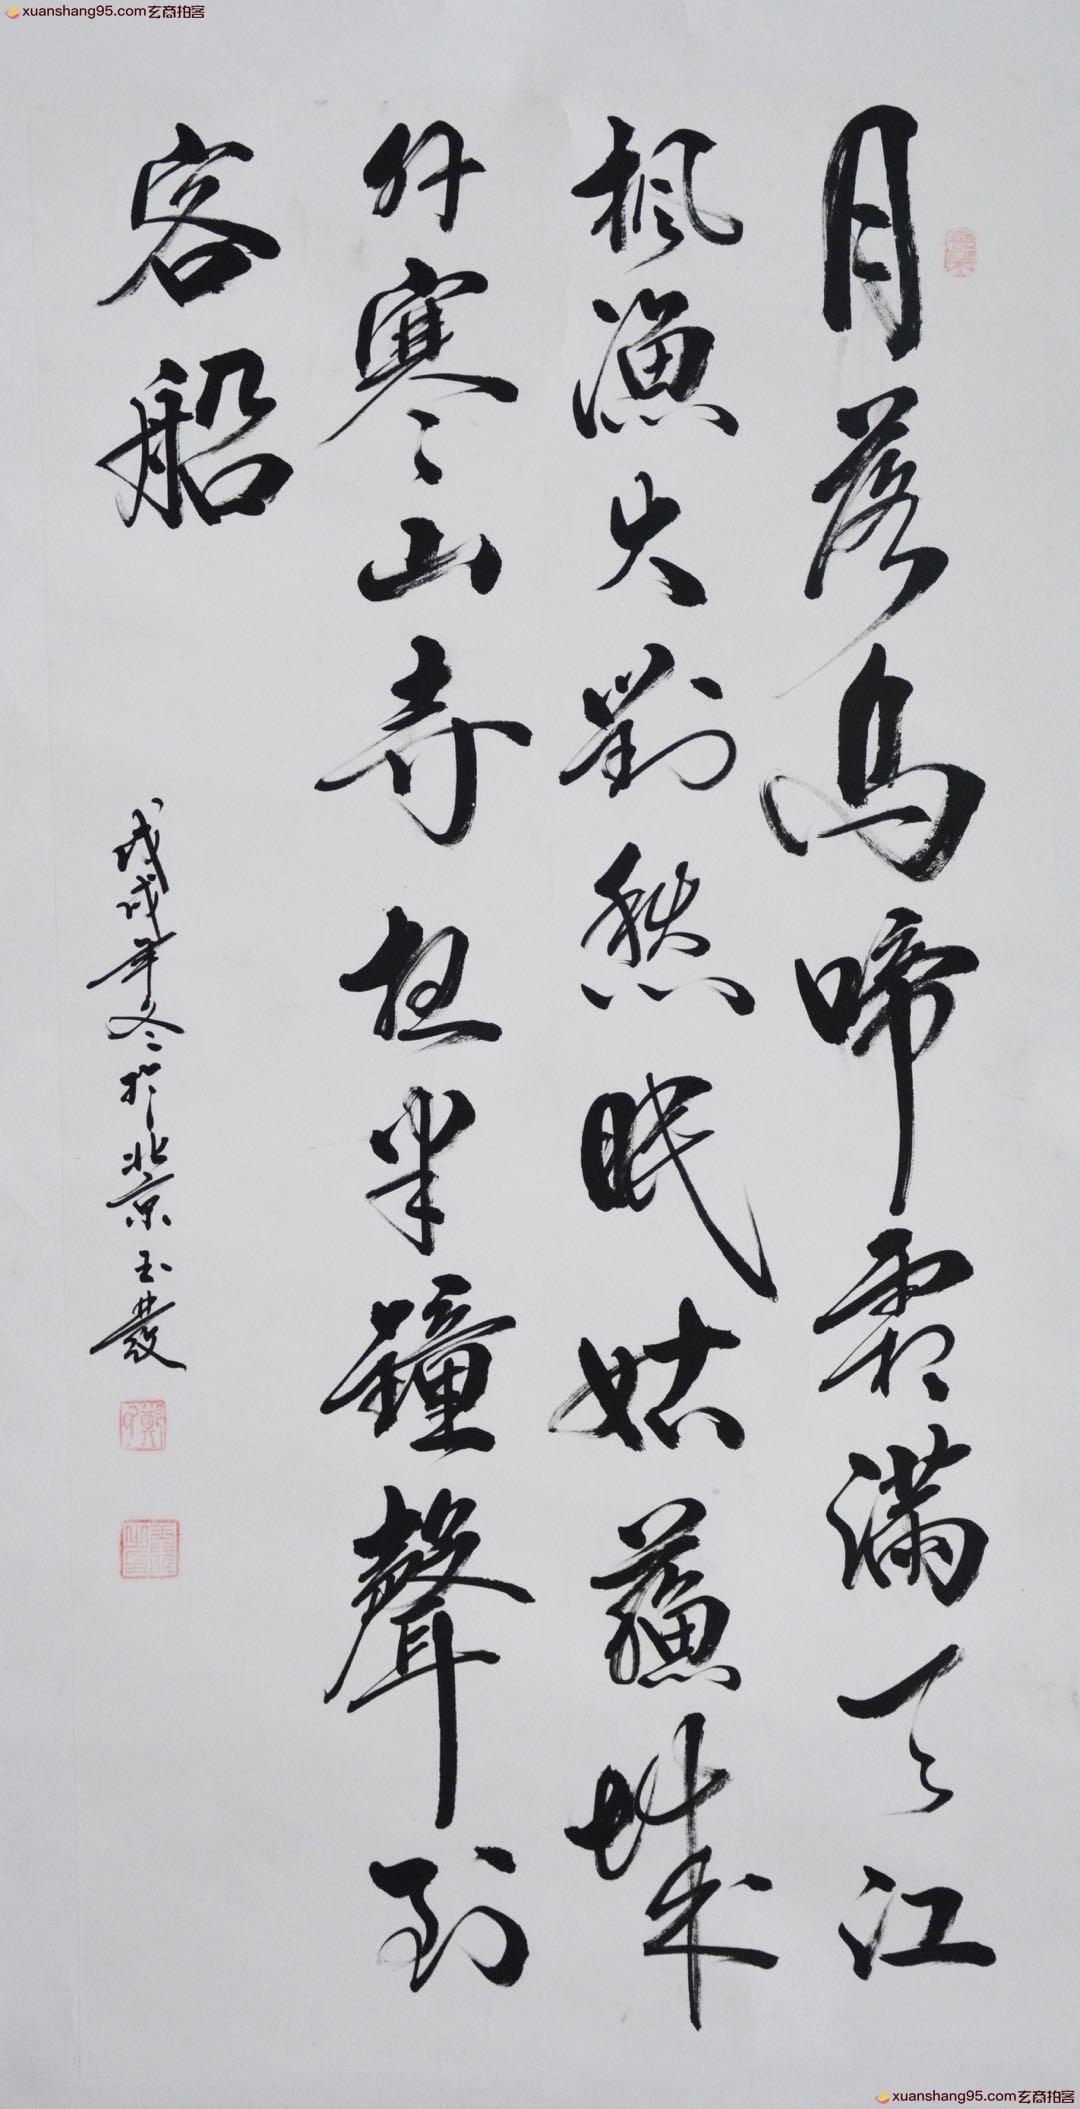 xuanshang95.com玄商拍客
月落烏啼霜滿天江
楓漁火對愁眠姑蘇城
外寒山寺夜半鐘聲到
客船
戊戌年冬於北京玉發
xuanshang95.com玄商拍客